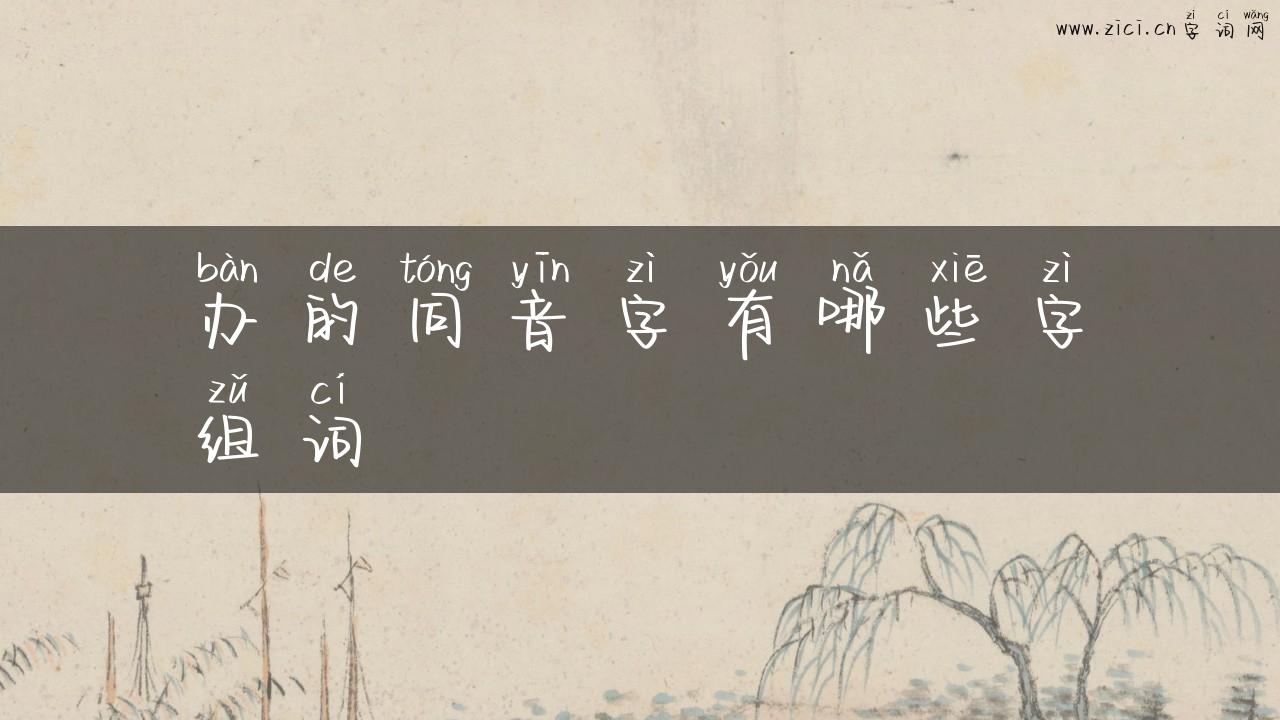 zì cí wǎng
www.zici.cn 字 词 网
bàn de tóng yīn zì yǒu nǎ xiē zì
办 的 同 音 字 有 哪 些 字
zǔ cí
组 词